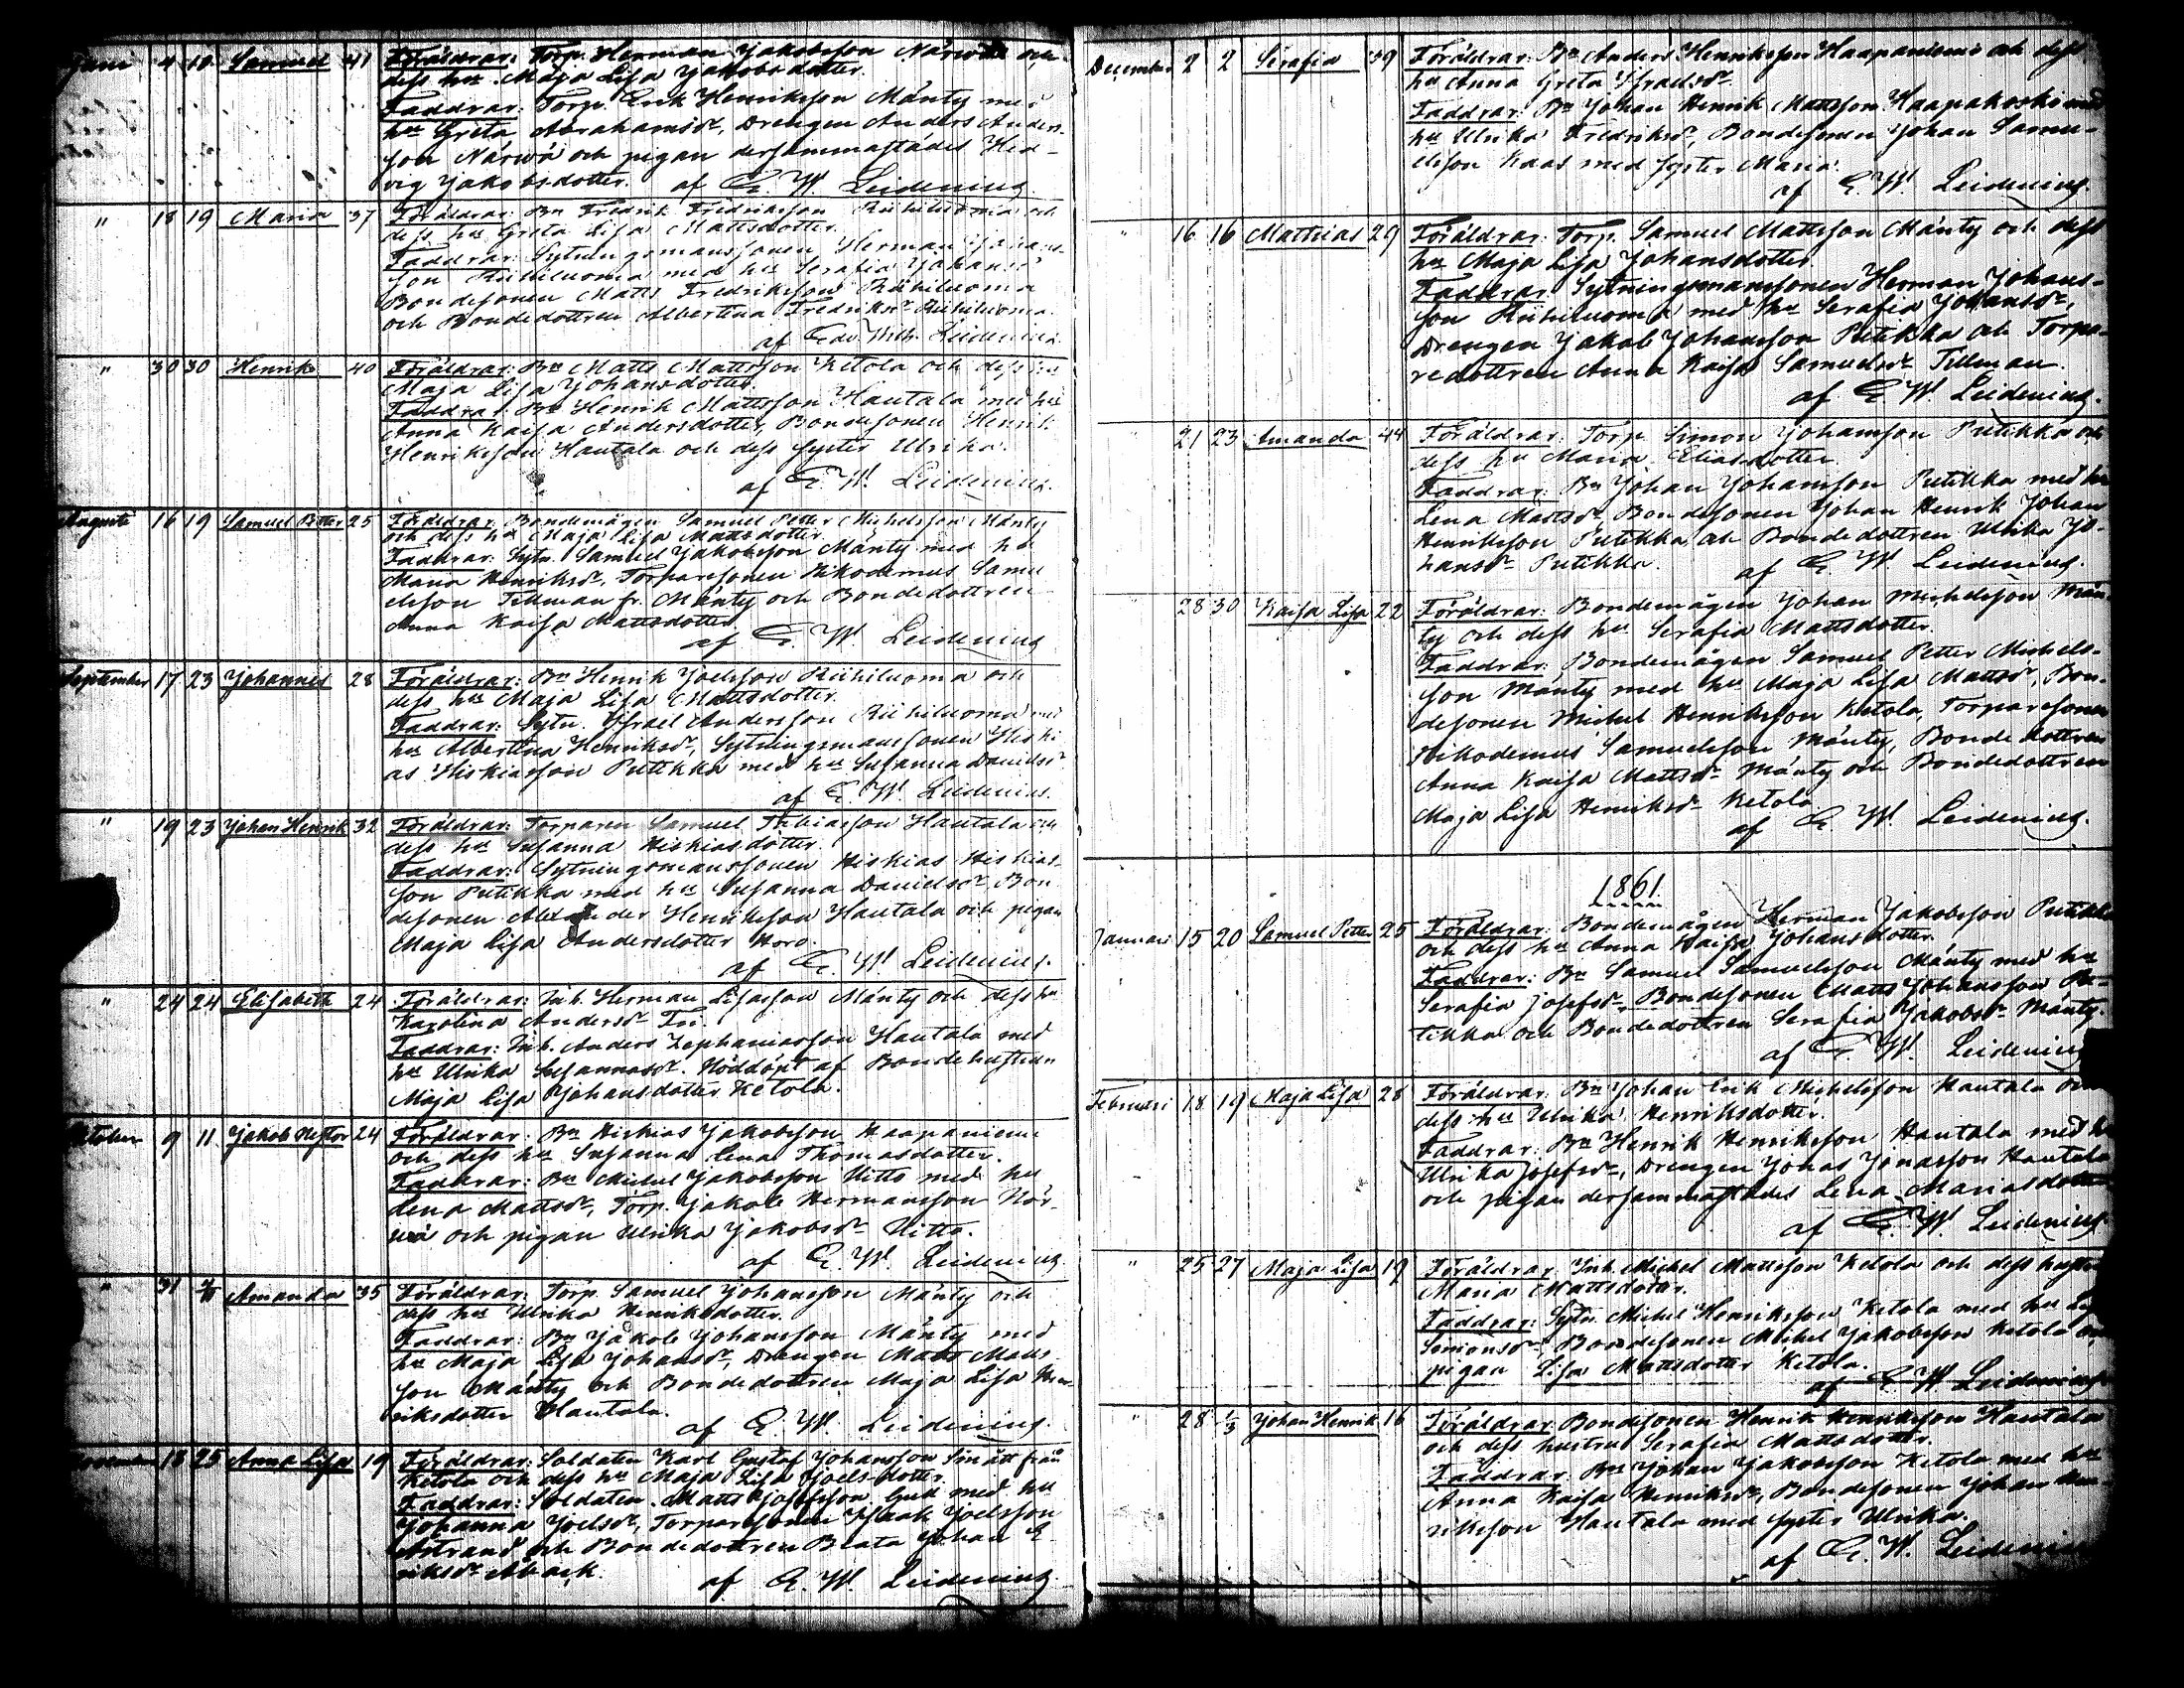 Juni 4 10 Samuel 41 Föräldrar: Torp. Herman Jakobsson Närwä och
dess hu. Maja Lisa Jakobsdotter.
Faddrar: Torp. Erik Henriksson Mänty med
hu Greta Abrahamsdr, Drengen Anders Anders-
son Närwä och pigan dersammastädes Hed-
vig Jakobsdotter. af E. W. Leidenius.
" 18 19 Maria 37 Föräldrar: Bn Fredrik Fredriksson Riihiluoma och
dess hu Greta Lisa Mattsdotter.
Faddrar: Sytningsmanssonen Herman Johans-
son Riihiluoma med hu Serafia Johansdr
Bondesonen Matts Fredriksson Riihiluoma
och Bondedottren Albertina Fredriksdr Riihiluoma.
af Edv. Wilh. Leidenius.
" 30 30 Henrik 40 Föräldrar: Bn Matts Mattsson Ketola och dess hu
Maja Lisa Johansdotter.
Faddrar: Bn Henrik Mattsson Hautala med hu
Anna Kaisa Andersdotter, Bondesonen Henrik
Henriksson Hautala och dess syster Ulrika.
af E. W. Leidenius.
Augusti 16 19 Samuel Petter 25 Föräldrar: Bondemågen Samuel Petter Michelsson Mänty
och dess hu Maja Lisa Mattsdotter.
Faddrar: Sytn. Samuel Jakobsson Mänty med hu
Maria Henriksdr, Torparesonen Nikodemus Samu-
elsson Tillman fr. Mänty och Bondedottren
Anna Kaisa Mattsdotter.
af E. W. Leidenius
September 17 23 Johannes 28 Föräldrar: Bn Henrik Joelsson Riihiluoma och
dess hu Maja Lisa Mattsdotter.
Faddrar: Sytn. Isfrael Andersson Riihiluoma med
hu Albertina Henriksdr, Sytningsmanssonen Hiski-
as Hiskiasson Putikka med hu Susanna Danielsdr
af E. W. Leidenius.
" 19 23 Johan Henrik 32 Föräldrar: Torparen Samuel Tobiasson Hautala och
dess hu Susanna Hiskiasdotter.
Faddrar: Sytningsmanssonen Hiskias Hiskias-
son Putikka med hu Susanna Danielsdr, Bon-
desonen Alexander Henriksson Hautala och pigan
Maja Lisa Andersdotter Horo.
af E. W. Leidenius.
" 24 24 Elisabeth 24 Föräldrar: Inh. Herman Lisasson Mänty och dess hu
Karolina Andersdr Fri.
Faddrar: Inh. Anders Zephaniasson Hautala med
hu Ulrika Susannasdr. Nöddöpt af Bondehustrun
Maja Lisa Johansdotter Ketola.
October 9 11 Jakob Nestor 24 Föräldrar: Bn Hiskias Jakobsson Haapaniemi
och dess hu Susanna Lena Thomasdotter.
Faddrar: Bn Michel Jakobsson Uitto med hu
Lena Mattsdr, Torp. Jakob Hermansson När-
wä och pigan Ulrika Jakobsdr Uitto.
af E. W. Leidenius
" 31 4/11 Amanda 35 Föräldrar: Torp. Samuel Johansson Mänty och
dess hu Ulrika Henriksdotter.
Faddrar: Bn Jakob Johansson Mänty med
hu Maja Lisa Johansdr, Drengen Matts Matts-
son Mänty och Bondedottren Maja Lisa Hen-
riksdotter Hautala.
af E. W. Leidenius.
November 18 25 Anna Lisa 19 Föräldrar: Soldaten Karl Gustaf Johansson Smått från
Ketola och dess hu Maja Lisa Joelsdotter.
Faddrar: Soldaten Matts Josefsson Gud med hu
Johanna Joelsdr, Torparesonen Isaak Joelsson
Åstrand och Bondedottren Beata Johan E-
riksdr Åback.
af E. W. Leidenius
December 2 2 Serafia 39 Föräldrar: Bn Anders Henriksson Haapaniemi och dess
hu Anna Greta Isfraelsdr
Faddrar: Bn Johan Henrik Mattsson Haapakoski med
hu Ulrika Fredriksdr, Bondesonen Johan Samu-
elsson Kaas med syster Maria.
af E. W. Leidenius.
" 16 16 Mathias 29 Föräldrar: Torp. Samuel Mattsson Mänty och dess
hu Maja Lisa Johansdotter.
Faddrar: Sytningsmanssonen Herman Johans-
son Riihiluoma med hu Serafia Johansdr,
Drengen Jakob Johansson Putikka och Torpa-
redottren Anna Kaisa Samuelsdr Tillman.
af E. W. Leidenius.
21 23 Amanda 44 Föräldrar: Torp. Simon Johansson Putikka och
dess hu Maria Eliasdotter.
Faddrar: Bn Johan Johansson Putikka med hu
Lena Mattsdr, Bondesonen Johan Henrik Johan
Henriksson Putikka och Bondedottren Ulrika Jo-
hansdr Putikka. af E. W. Leidenius.
" 28 30 Kaisa Lisa 22 Föräldrar: Bondemågen Johan Michelsson Män-
ty och dess hu Serafia Mattsdotter.
Faddrar: Bondemågen Samuel Petter Michels-
son Mänty med hu Maja Lisa Mattsdr, Bon-
desonen Michel Henriksson Ketola, Torparesonen
Nikodemus Samuelsson Mänty, Bondedottren
Anna Kaisa Mattsdr Mänty och Bondedottren
Maja Lisa Henriksdr Ketola
af E. W. Leidenius.
1861.
Januari 15 20 Samuel Petter 25 Föräldrar: Bondemågen Herman Jakobsson Putikka
och dess hu Anna Kaisa Johansdotter.
Faddrar: Bn Samuel Samuelsson Mänty med hu
Serafia Josefsdr, Bondesonen Matts Johansson Pu-
tikka och Bondedottren Serafia Jakobsdr Mänty.
af E. W. Leidenius
Februari 18 19 Maja Lisa 28 Föräldrar: Bn Johan Erik Michelsson Hautala och
dess hu Ulrika Henriksdotter.
Faddrar: Bn Henrik Henriksson Hautala med hu
Ulrika Josefsdr, Drengen Johas Jonasson Hautala
och pigan dersammastädes Lena Mariasdotter
af E. W. Leidenius.
" 25 27 Maja Lisa 19 Föräldrar: Inh. Michel Mattsson Ketola och dess hustru
Maria Mattsdotter.
Faddrar: Sytn. Michel Henriksson Ketola med hu Lisa
Simonsdr, Bondesonen Michel Jakobsson Ketola och
pigan Lisa Mattsdotter Ketola.
af E. W. Leidenius
" 28 1/3 Johan Henrik 16 Föräldrar: Bondesonen Henrik Henriksson Hautala
och dess hustru Serafia Mattsdotter.
Faddrar: Bn Johan Jakobsson Ketola med hu
Anna Kaisa Henriksdr, Bondesonen Johan Hen-
riksson Hautala med syster Ulrika.
af E. W. Leidenius